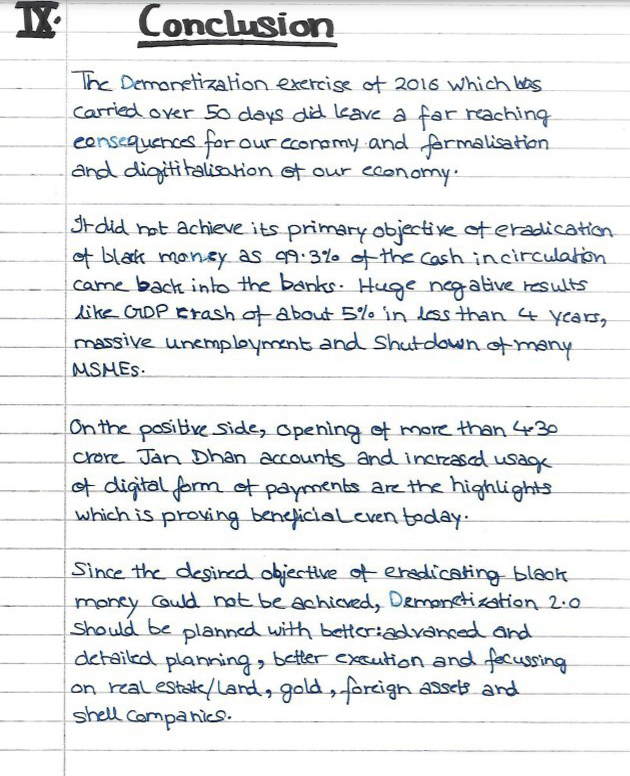 IX. Conclusion
The Demonetization exercise of 2016 which was
carried over 50 days did leave a far reaching
consequences for our economy and formalisation
and digititalisation of our economy.
It did not achieve its primary objective of eradication
of black money as 99.3% of the cash in circulation
came back into the banks. Huge negative results
like GDP crash of about 5% in less than 4 years,
massive unemployment and shutdown of many
MSMEs.
On the positive side, opening of more than 430
crore Jan Dhan accounts and increased usage
of digital form of payments are the highlights
which is proving beneficial even today.
Since the desired objective of eradicating black
money could not be achieved, Demonetization 2.0
should be planned with better: advanced and
detailed planning, better execution and focussing
on real estate/land, gold, foreign assets and
shell companies.